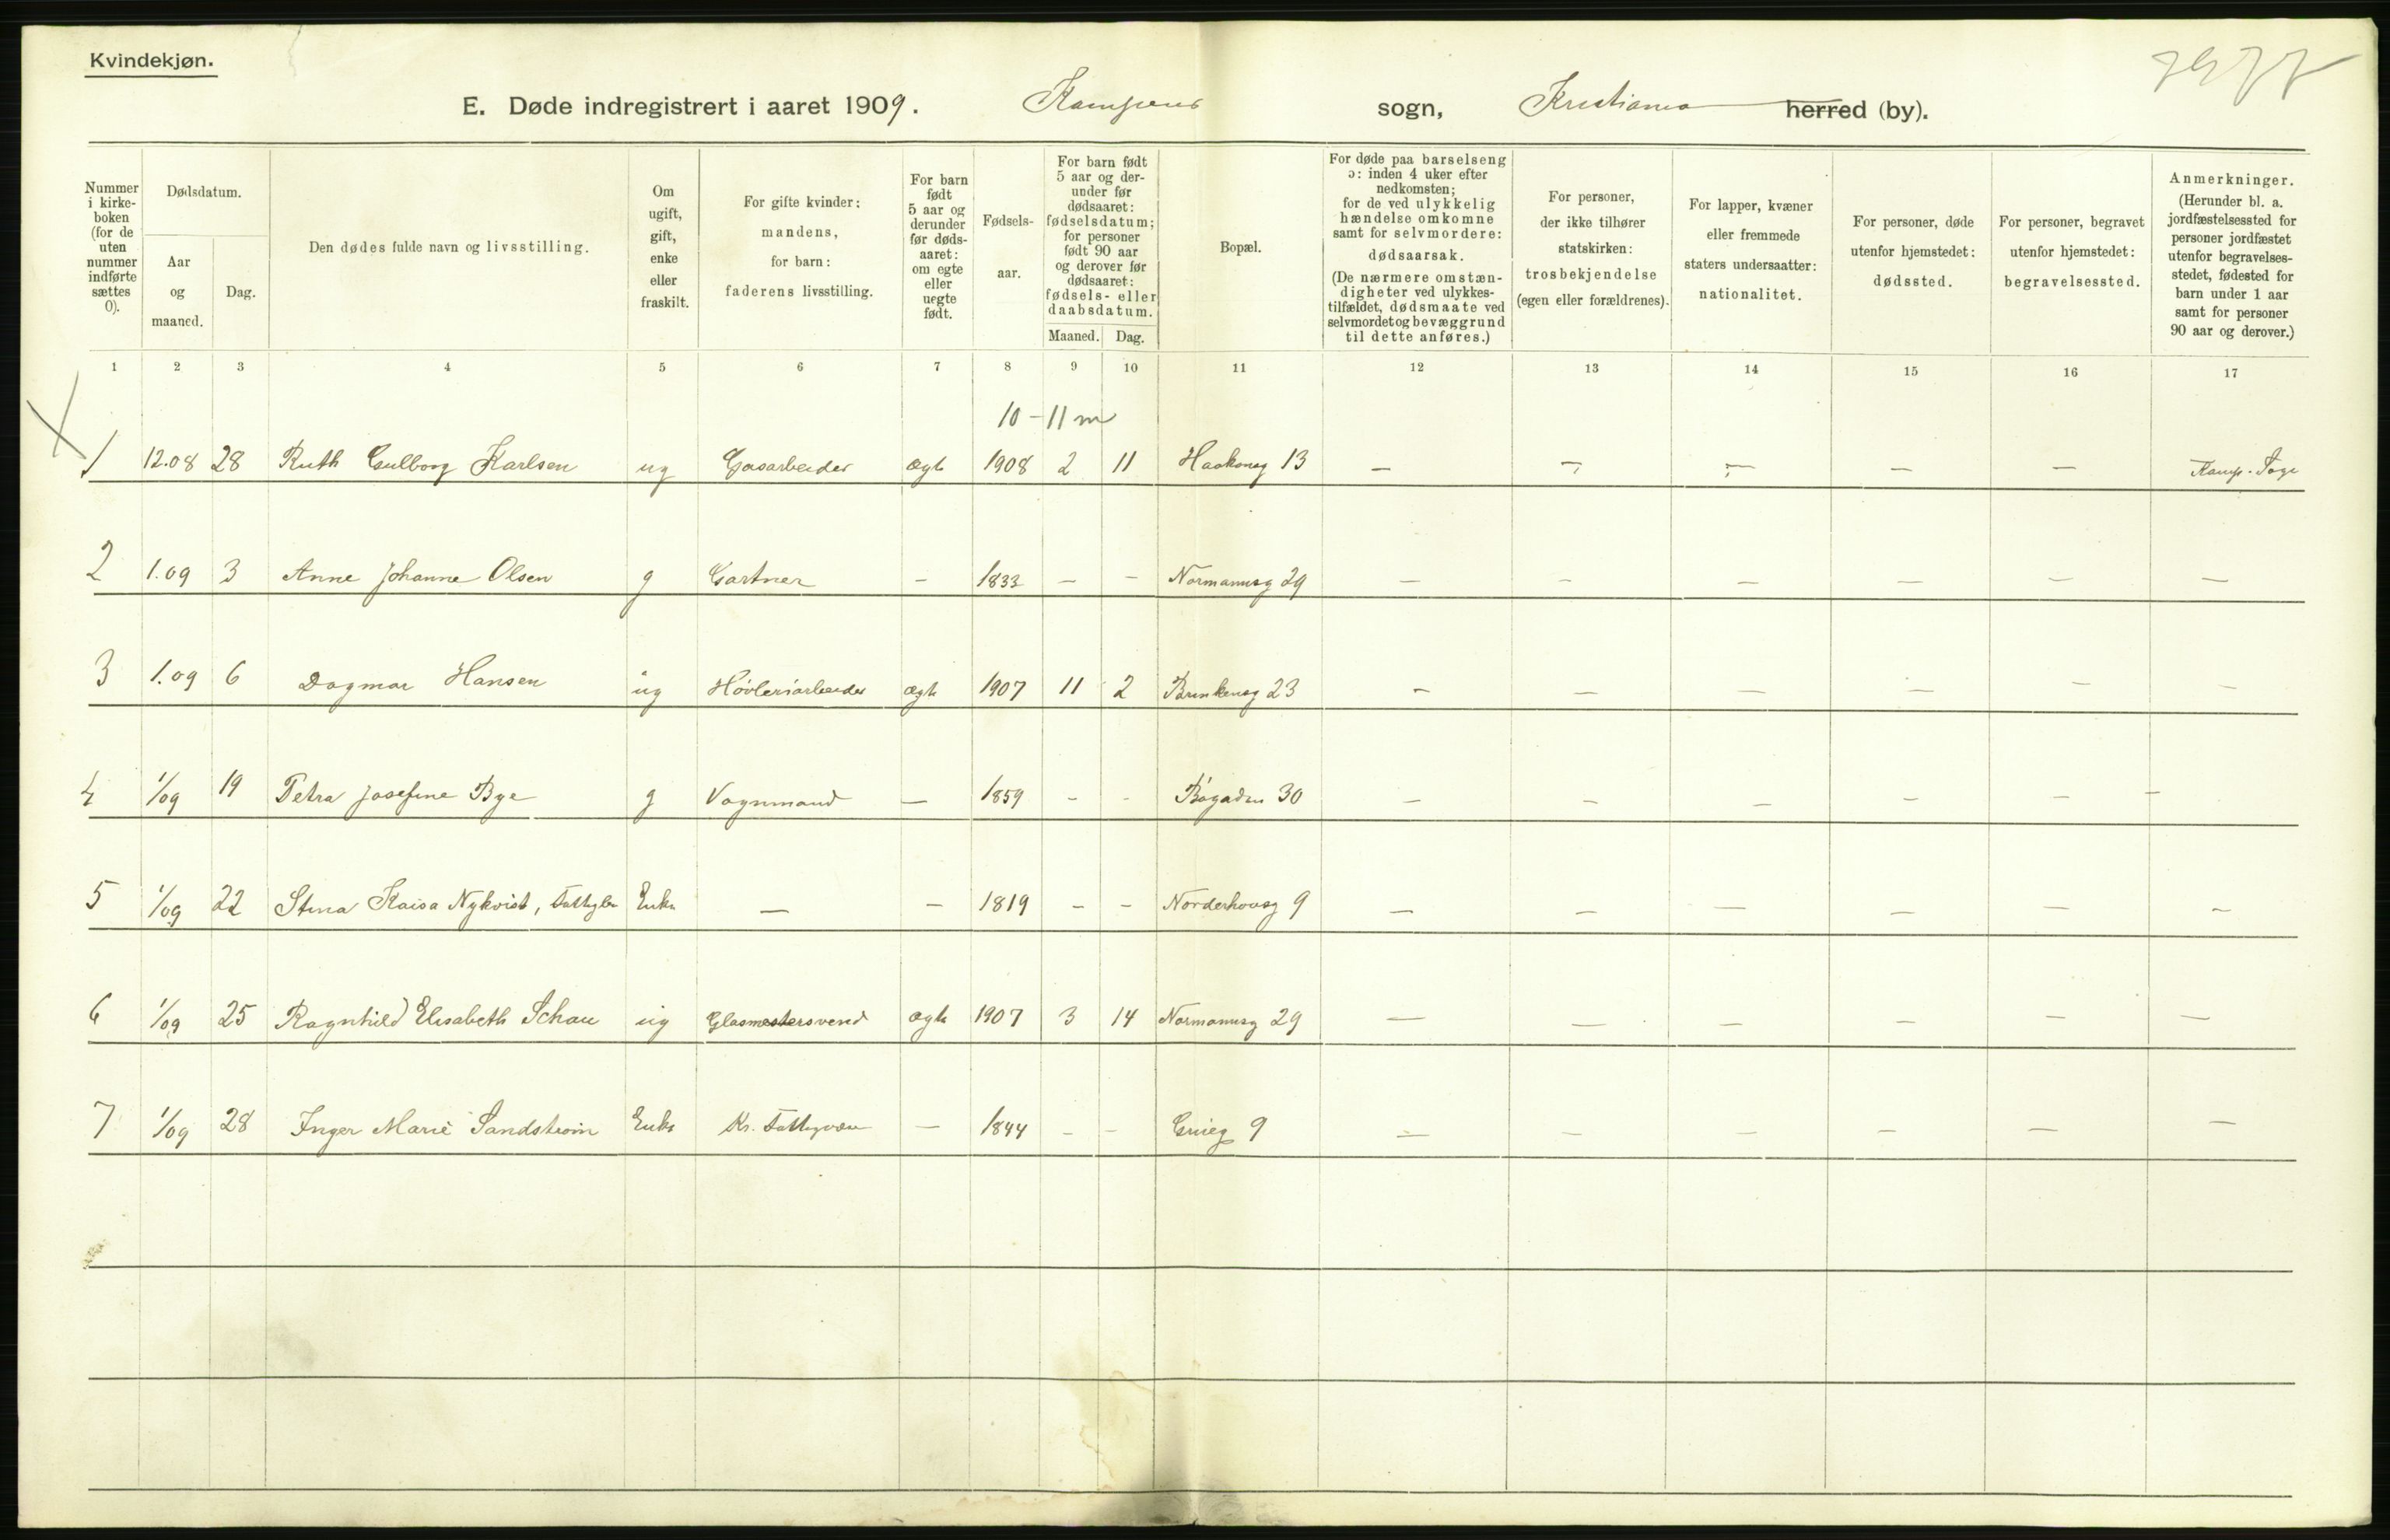 Kvindekjøn.
E. Døde indregistrert i aaret 1909. Kampens sogn, Kristiania herred (by).
Nummer i kirke-boken (for de uten nummer indførte sættes 0).
Dødsdatum.
Aar og maaned.
Dag.
Den dødes fulde navn og livsstilling.
Om ugift, gift, enke eller fraskilt.
For gifte kvinder: mandens, for barn: faderens livsstilling.
For barn født 5 aar og derunder før døds-aaret: om egte eller uegte født.
Fødsels-aar.
For barn født 5 aar og der-under før dødsaaret: fødselsdatum; for personer født 90 aar og derover før dødsaaret: fødsels- eller daabsdatum.
Maaned. Dag.
Bopæl.
For døde paa barselseng ɔ: inden 4 uker efter nedkomsten; for de ved ulykkelig hændelse omkomne samt for selvmordere: dødsaarsak. (De nærmere omstæn-digheter ved ulykkes-tilfældet, dødsmaate ved selvmordet og bevæggrund til dette anføres.)
For personer, der ikke tilhører statskirken: trosbekjendelse (egen eller forældrenes).
For lapper, kvæner eller fremmede staters undersaatter: nationalitet.
For personer, døde utenfor hjemstedet: dødssted.
For personer, begravet utenfor hjemstedet: begravelsessted.
Anmerkninger. (Herunder bl. a. jordfæstelsessted for personer jordfæstet utenfor begravelses-stedet, fødested for barn under 1 aar samt for personer 90 aar og derover.)
1 2 3 4 5 6 7 8 9 10 11 12 13 14 15 16 17
10-11 m
1 12.08 28 Ruth Gulborg Karlsen ug Gasarbeider ægte 1908 2 11 Haakonsg 13 — — — — — Kamp.
2 1.09 3 Anne Johanne Olsen g Gartner — 1833 — — Normannsg 29 — — — — — —
3 1.09 6 Dagmar Hansen ug Høvleriarbeider ægte 1907 11 2 Brinkensg 23 — — — — — —
4 1/09 19 Petra Josefine Bye g Vognmand — 1859 - - Bøgaden 30 — — — — — —
5 1/09 22 Stina Kaisa Nykvist, Enke — — 1819 - - Norderhovsg 9 — — — — — —
6 1/09 25 Ragnhild Elisabeth Schau ug Glasmestersvend ægte 1907 3 14 Normannsg 29 — — — — — —
7 1/09 28 Inger Marie Sandstrøm Enke — 1844 - - Griegs 9 — — — — — —